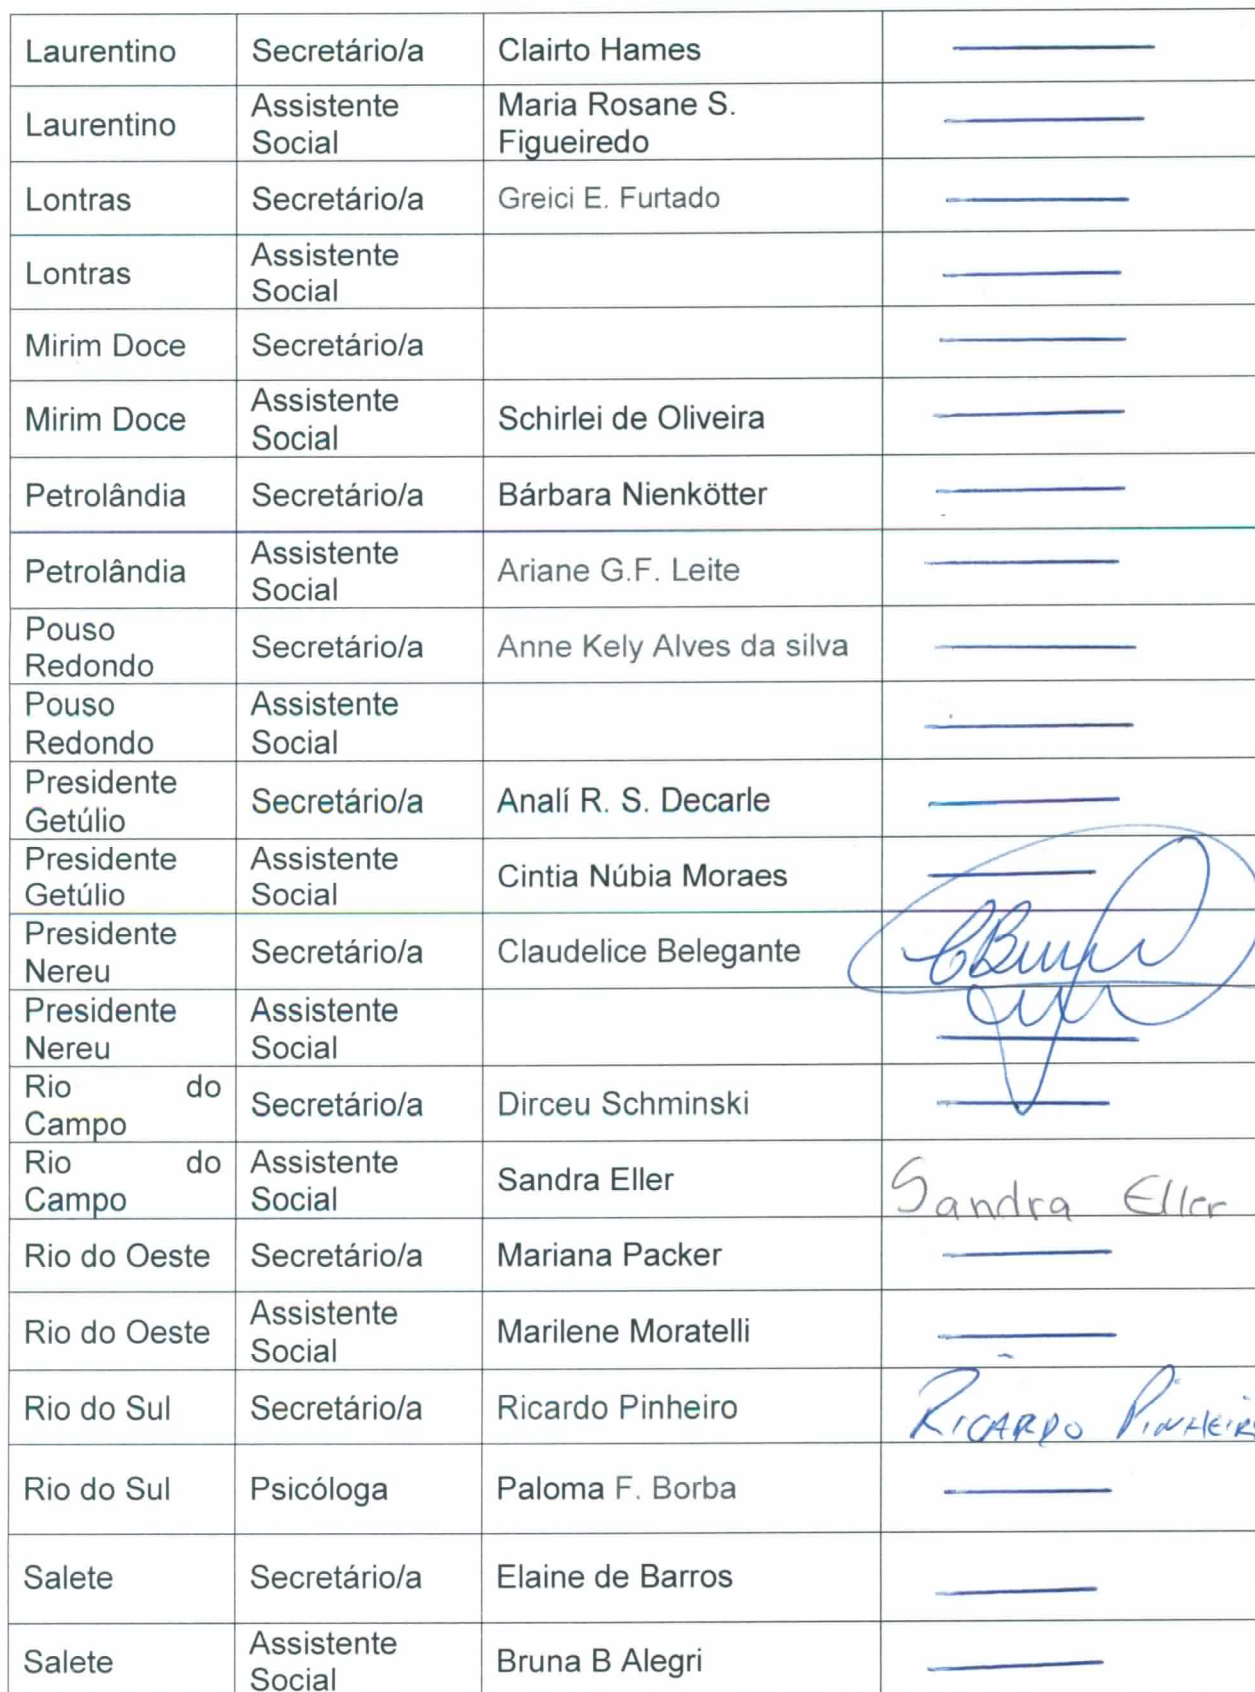 Laurentino Secretário/a Clairto Hames
Laurentino Assistente Social Maria Rosane S. Figueiredo
Lontras Secretário/a Greici E. Furtado
Lontras Assistente Social
Mirim Doce Secretário/a
Mirim Doce Assistente Social Schirlei de Oliveira
Petrolândia Secretário/a Bárbara Nienkötter
Petrolândia Assistente Social Ariane G.F. Leite
Pouso Redondo Secretário/a Anne Kely Alves da silva
Pouso Redondo Assistente Social
Presidente Getúlio Secretário/a Analí R. S. Decarle
Presidente Getúlio Assistente Social Cintia Núbia Moraes
Presidente Nereu Secretário/a Claudelice Belegante
Presidente Nereu Assistente Social
Rio do Campo Secretário/a Dirceu Schminski
Rio do Campo Assistente Social Sandra Eller Sandra Eller
Rio do Oeste Secretário/a Mariana Packer
Rio do Oeste Assistente Social Marilene Moratelli
Rio do Sul Secretário/a Ricardo Pinheiro RICARDO PINHEIRO
Rio do Sul Psicóloga Paloma F. Borba
Salete Secretário/a Elaine de Barros
Salete Assistente Social Bruna B Alegri